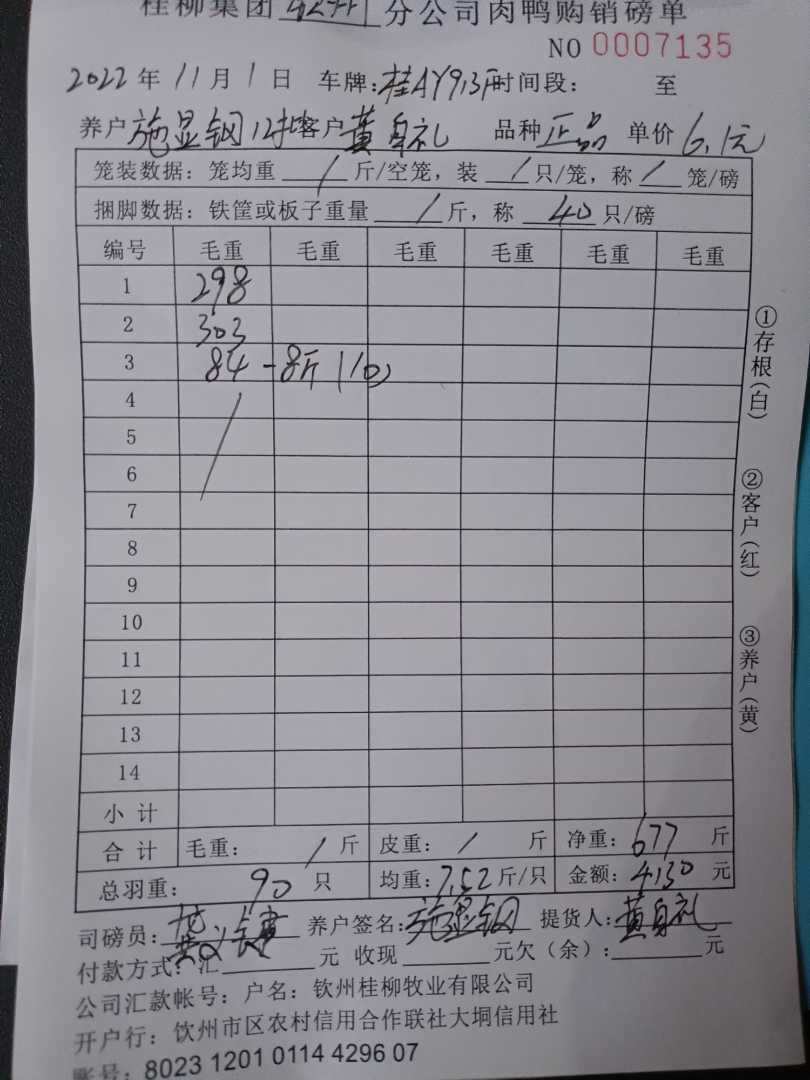 桂柳集团 分公司肉鸭购销磅单
NO 0007135
2022年11月1日 车牌:桂AY913F 时间段: 至
养户施显钢12批 客户黄身礼 品种正品 单价6.1元
笼装数据: 笼均重 / 斤/空笼, 装 / 只/笼, 称 / 笼/磅
捆脚数据: 铁筐或板子重量 / 斤, 称 40 只/磅
编号 毛重 毛重 毛重 毛重 毛重 毛重
1 298
2 303
3 84-8斤(10)
4
5
6
7
8
9
10
11
12
13
14
小计
合计 毛重: / 斤 皮重: / 斤 净重: 677 斤
总羽重: 90 只 均重: 7.52 斤/只 金额: 4130 元
司磅员: 养户签名: 施显钢 提货人: 黄身礼
付款方式: 汇 元 收现 元欠(余): 元
公司汇款帐号: 户名: 钦州桂柳牧业有限公司
开户行: 钦州市区农村信用合作联社大垌信用社
账号: 8023 1201 0114 4296 07
①存根(白)
②客户(红)
③养户(黄)